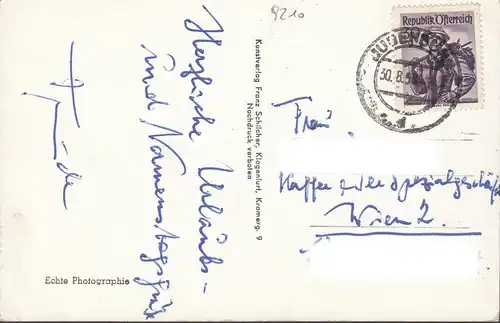 9210
Herzliche Urlaubs-
und Namenstagsgrüße
Kunstverlag Franz Schilcher, Klagenfurt, Kramerg. 9
Nachdruck verboten
Echte Photographie
Republik Österreich
JUDENBURG
30.8.5
Frau
Kaffee Spezialgeschäft
Wien 2.